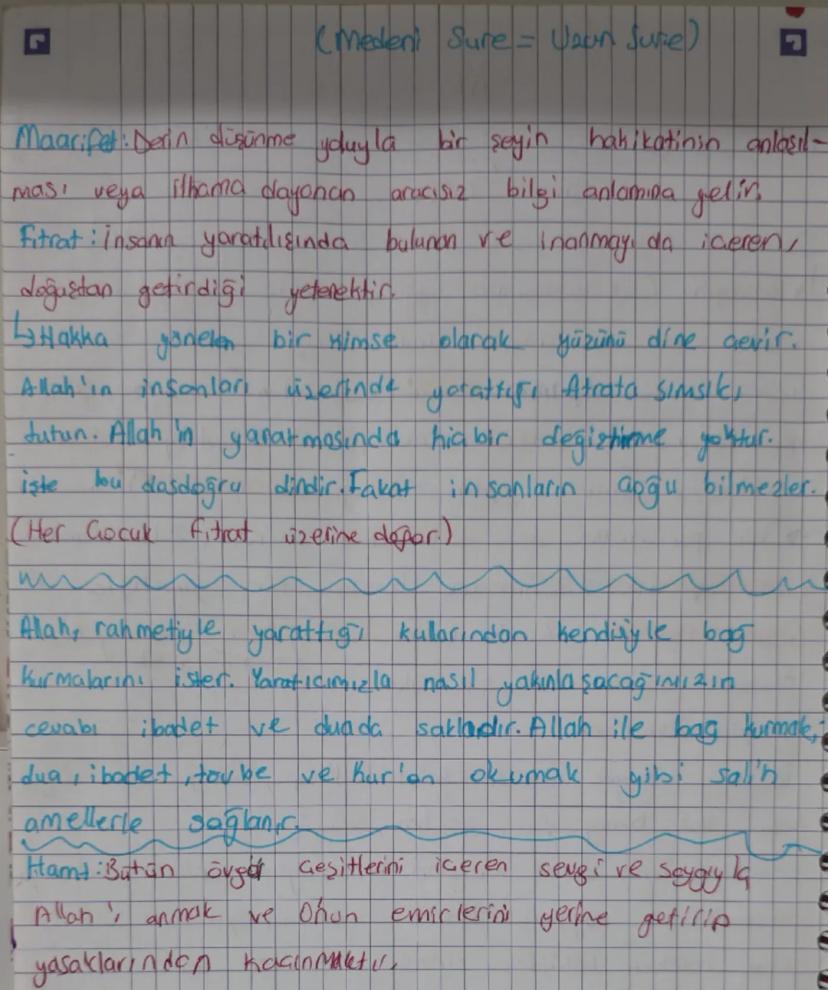 (Medeni Sure = Uzun Sure)
Maarifet: Derin düşünme yoluyla bir şeyin hakikatinin anlaşıl-
ması veya ilhama dayanan aracısız bilgi anlamına gelir.
Fıtrat: İnsanın yaratılışında bulunan ve inanmayı da içeren,
doğuştan getirdiği yetenektir.
↳Hakka yönelen bir kimse olarak yüzünü dine çevir.
Allah'ın insanları üzerinde yarattığı fıtrata sımsıkı
tutun. Allah'ın yaratmasında hiçbir değiştirme yoktur.
işte bu dosdoğru dindir. Fakat insanların çoğu bilmezler.
(Her Çocuk fıtrat üzerine doğar.)
Alah, rahmetiyle yarattığı kularından kendisiyle bağ
kurmalarını ister. Yaratıcımızla nasıl yakınlaşacağımızın
cevabı ibadet ve duada saklıdır. Allah ile bağ kurmak,
dua, ibadet, tovbe ve Kur'an okumak gibi salih
amellerle sağlanır.
Hamt: Bütün övgü çeşitlerini içeren sevgi ve saygıyla
Allah'ı anmak ve Onun emirlerini yerine getirip
yasaklarından kaçınmaktır.